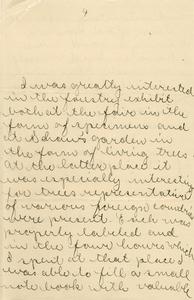 4
I was greatly interested
in the forestry exhibit
both at the fair in the
form of specimens and
at Shaw's garden in
the form of living trees.
At the latter place it
was especially interesting
for trees representative
of various foreign countries
were present. Each was
properly labeled and
in the four hours which
I spent at that place I
was able to fill a small
note book with valuable